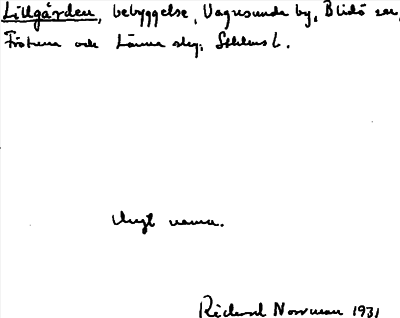 Lillgården, bebyggelse, Vagnsunda by, Blidö sn,
Frötuna och Länna skg, Sthlms l.
Ungt namn.
Rickard Norrman 1931